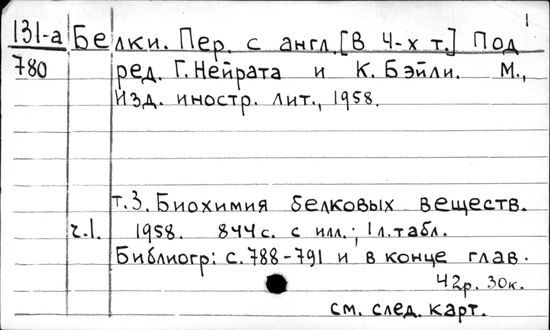 1
131-а Белки. Пер. с англ. [В 4-х т.] Под
780 ред. Г. Нейрата и К. Бэйли. М.,
Изд. иностр. лит., 1958.
т. 3. Биохимия белковых веществ.
ч. 1. 1958. 844 с. с илл.; 1 л. табл.
Библиогр: с. 788-791 и в конце глав.
42р. 30к.
см. след. карт.